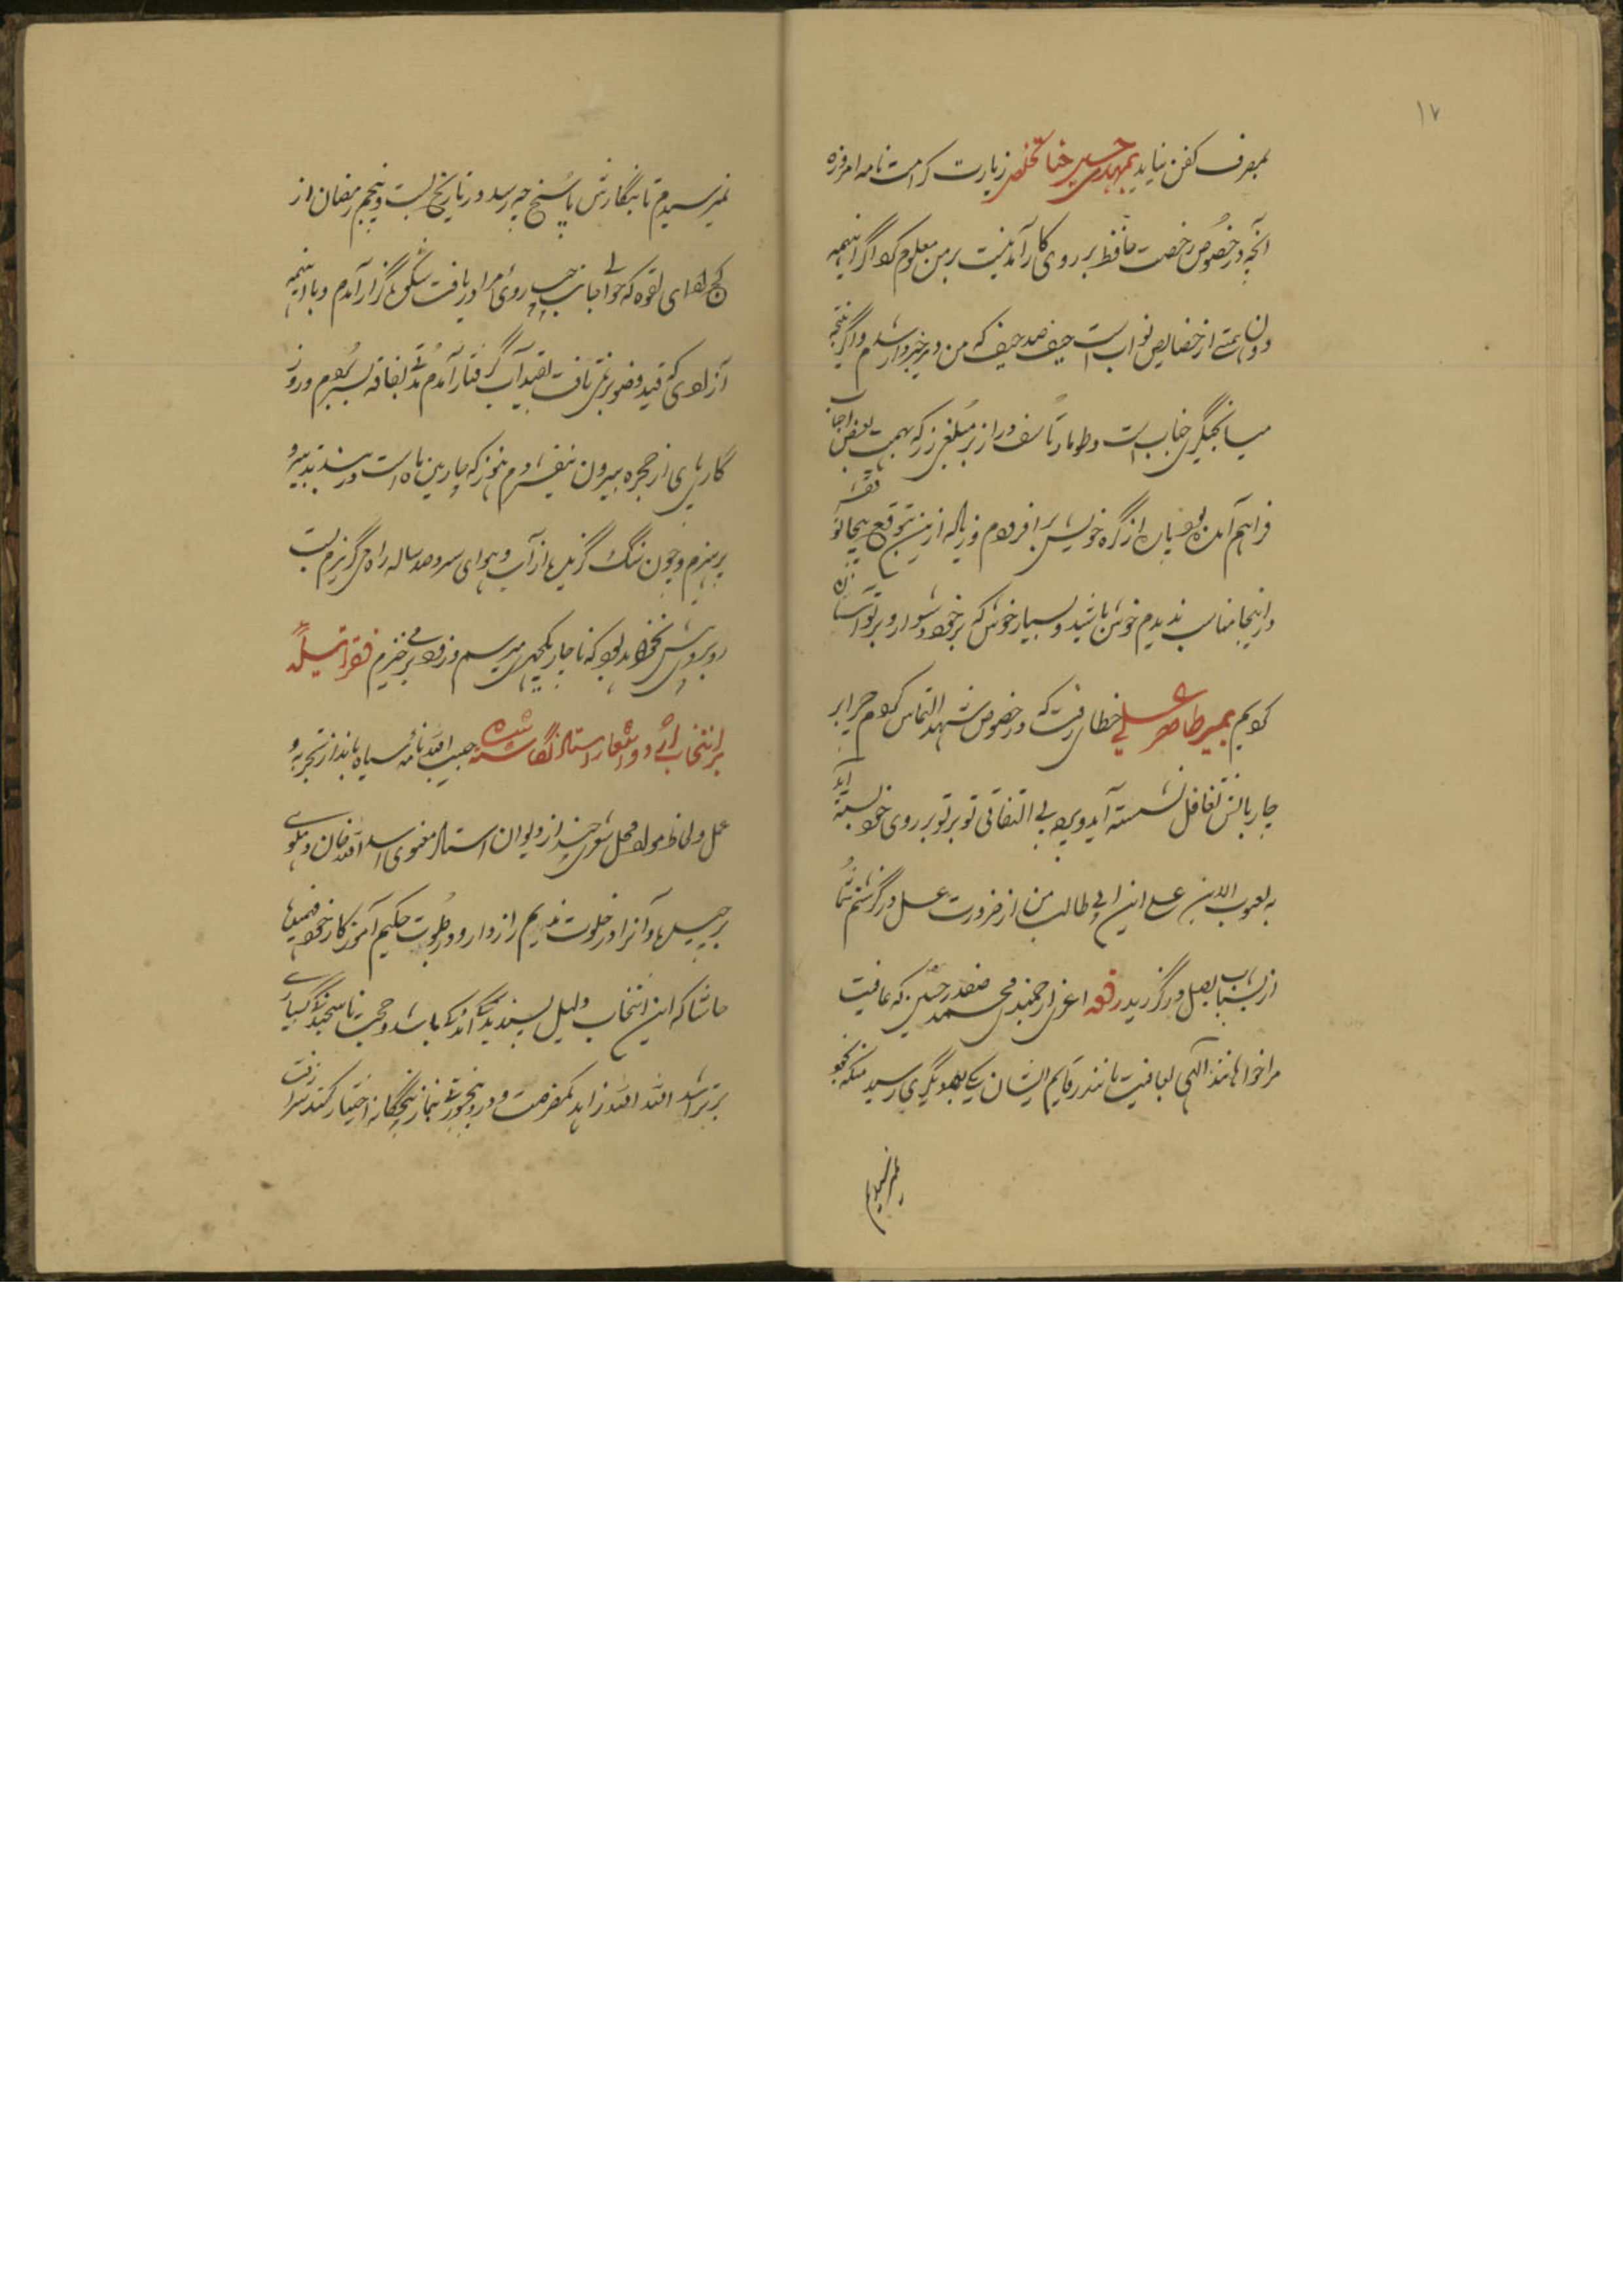 ۱۷
بمصرف کفن نیاید بمهدی حسین خان تخلص زیارت کرامت نامه امروزه
آنچه در خصوص رخصت حافظ بر روی کار آمدنیست بر من معلوم کرد اگر اینهمه
دون همتی از خصایص نواب است حیف صد حیف که من دیر خبردار شدم و اگر نتیجه
میانجیگری جناب است و طومار تأسف دراز تر مبلغی زر که بهمت بعض احباب
فراهم آمده بود پاره از گره خویش بر افزودم و زیاده ازین توقع بیجا تو
و از اینجا مناسب ندیدم خوش باشید و بسیار خوش که بر خود دشوار و بر تو آسان
کردیم بمیر طاهر علی خطا رفت که در خصوص شهد التماس کردم چرا بر
چار بالش تغافل نشسته آید و پرده بی التفاتی تو بر تو بر روی خود بسته آید
به یعسوب الدین علی ابن ابی طالب من از ضرورت عسل در گذشتم شما
از شتاب بعمل در گذرید رقعه اعزی ارجمندی محمد صفدر حسین که عافیت
مرا خواهانند الهی بعافیت مانند رقایم ایشان یکی بعد دیگری رسید منکه بخود
نمیرسیدم
نمیرسیدم تا بنگارش پاسخ چه رسد در تاریخ بست و پنجم رمضان از
کج ادای لقوه که حوالی جانب چپ روی مرا دریافت شگون گزار آمدم و با اینهمه
آزادی که قید وضو بر نمی تافت بقید آب گرفتار آمدم مدتی بفاقه بسر بردم و روز
گار پای از حجره بیرون نیفشردم هنوز که چارمین ماه است در بند تدبیر و
پرهیزم و چون سنگ گزیده از آب و هوای سرد صد ساله راه می گریزم لب
روبروشن نخواهد بود که ناچار بکچهری میرسم و زود بر می خیزم فقرات سلمه
بر انتخاب و دو اشعار استاد نگاشته شده حبیب الله نامه سیاه بانداز تجربه و
عمل ولحاظ مواد و محل شعری چند از دیوان استاد معنوی اسد الله خان دهلوی
بر چیده و آنرا در خلوت ندیم رازدار و در جلوت حکیم آموزگار خود فهمیده
حاشا که این انتخاب دلیل پسندیدگی اندکی باشد و حجت ناسنجیدگی بسیاری
بر تراشد الله الله زاهد کمفرصت در رنجوری نماز پنجگانه اختیار کند سزا رفت